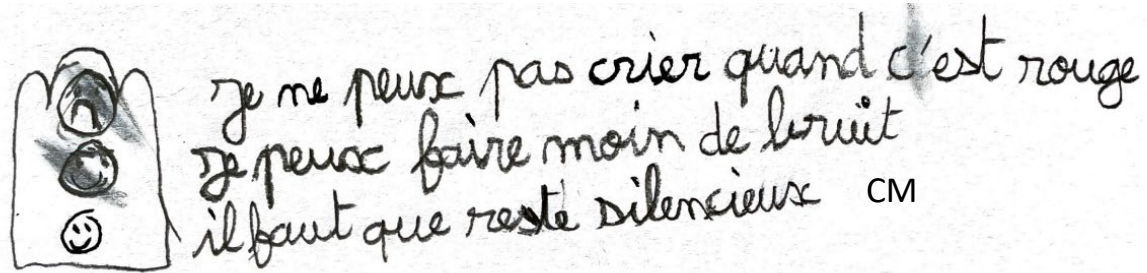 je ne peux pas crier quand c'est rouge
je peux faire moin de bruit
il faut que reste silencieux CM